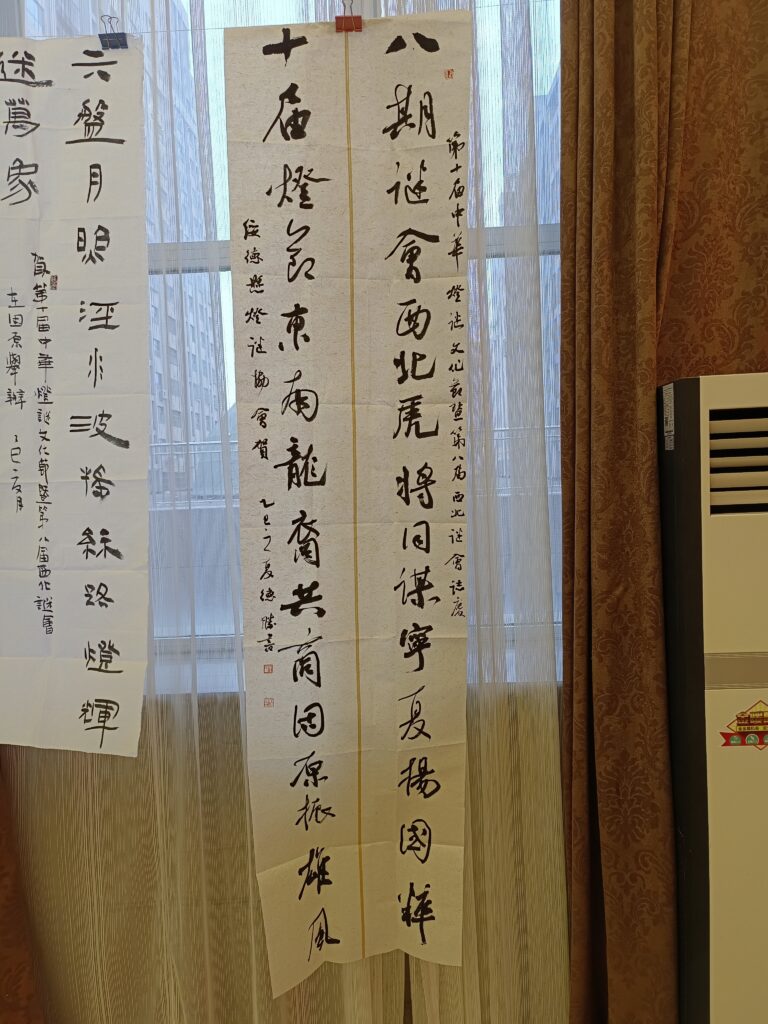 八期谜會西北虎將同謀寧夏揚國粹
第十届中華燈谜文化节暨第八届西北谜會誌慶
十届燈節東南龍裔共商固原振雄風
绥德縣燈谜協會賀 乙巳之夏德勝書
六盤月眀涇水波搖絲路燈輝
賀第十届中華燈謎文化節暨第八届西北謎會
在固原舉辦 乙巳六月
萬象